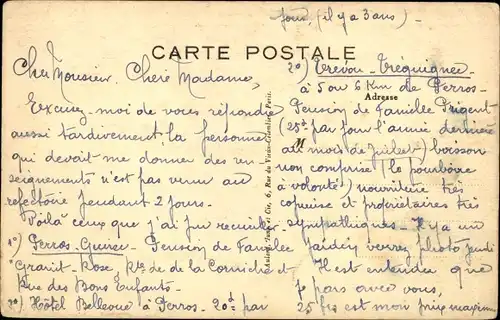 Cher Monsieur, Chère Madame,
Excusez moi de vous répondre
aussi tardivement, la personne
qui devait me donner des ren
seignements n'est pas venue au
réfectoire pendant 2 jours.
Voilà ceux que j'ai pu recueillir
1°) Perros-Guirec - Pension de Famille
"Granit-Rose" Rte de la Corniche et
Rue des Bons Enfants -
2°) Hôtel Bellevue à Perros - 20d par
jour, (il y a 3 ans) -
CARTE POSTALE
Adresse
M
6, Rue du Paris.
2°) Trévou-Tréguignec
à 5 ou 6 Km de Perros-
Pension de Famille Prigent
(25d par jour l'année dernière
au mois de Juillet) boisson
non comprise (le pourboire
à volonté) nourriture très
copieuse et propriétaires très
sympathiques - Il y a un
jardin
Il est entendu que
je pars avec vous,
25 frs est mon prix maximum